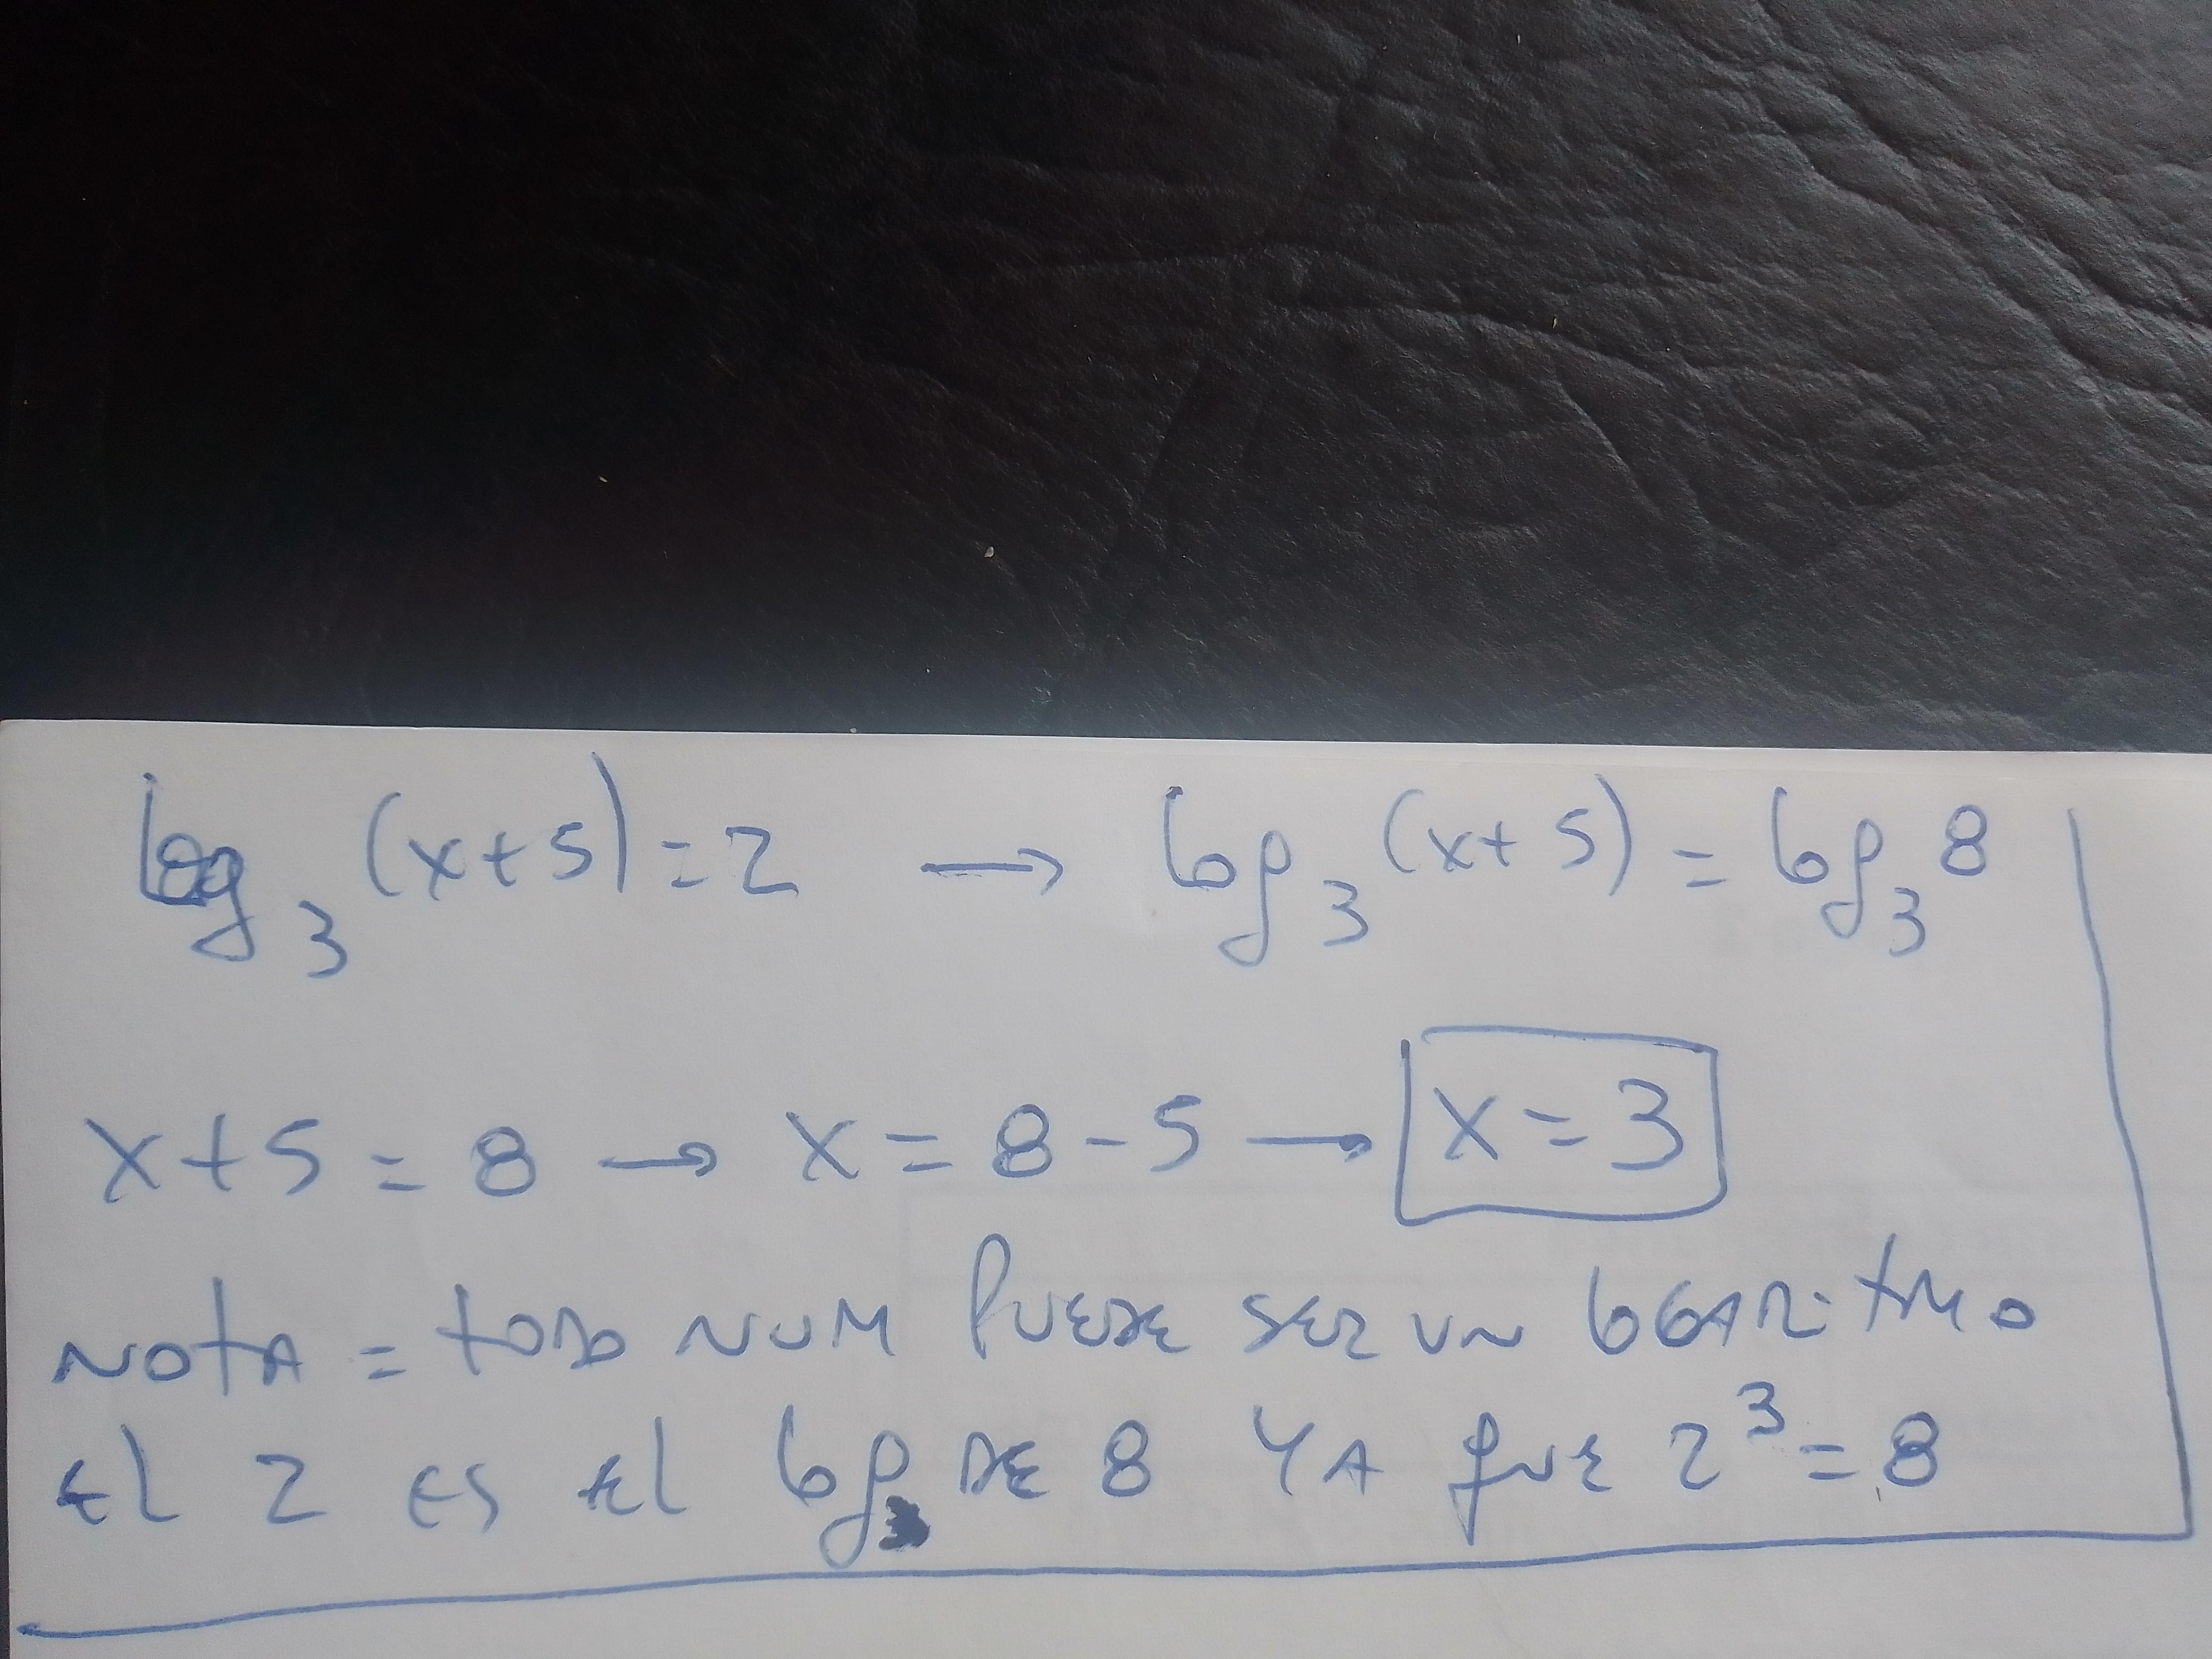 log₃(x+5)=2 → log₃(x+5) = log₃8
x+5 = 8 → x = 8-5 → x = 3
NOTA = TODO NUM PUEDE SER UN LOGARITMO
EL 2 ES EL log₃ DE 8 YA QUE 2³=8